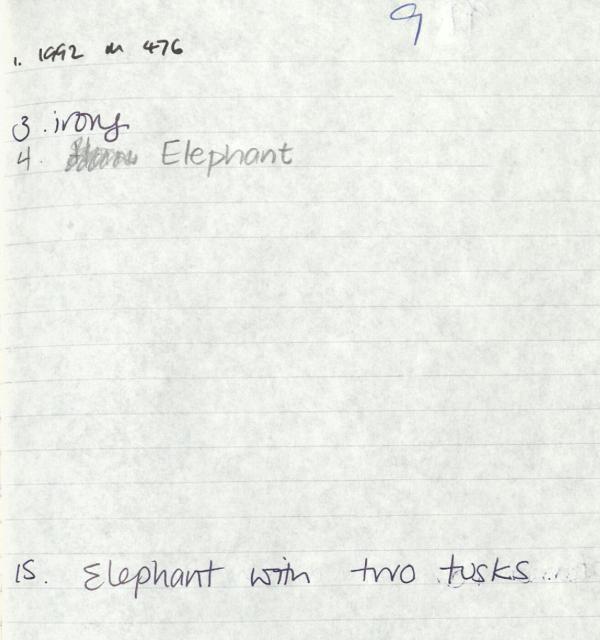 9
1. 1992 m 476
3. irony
4. Elephant
15. Elephant with two tusks...